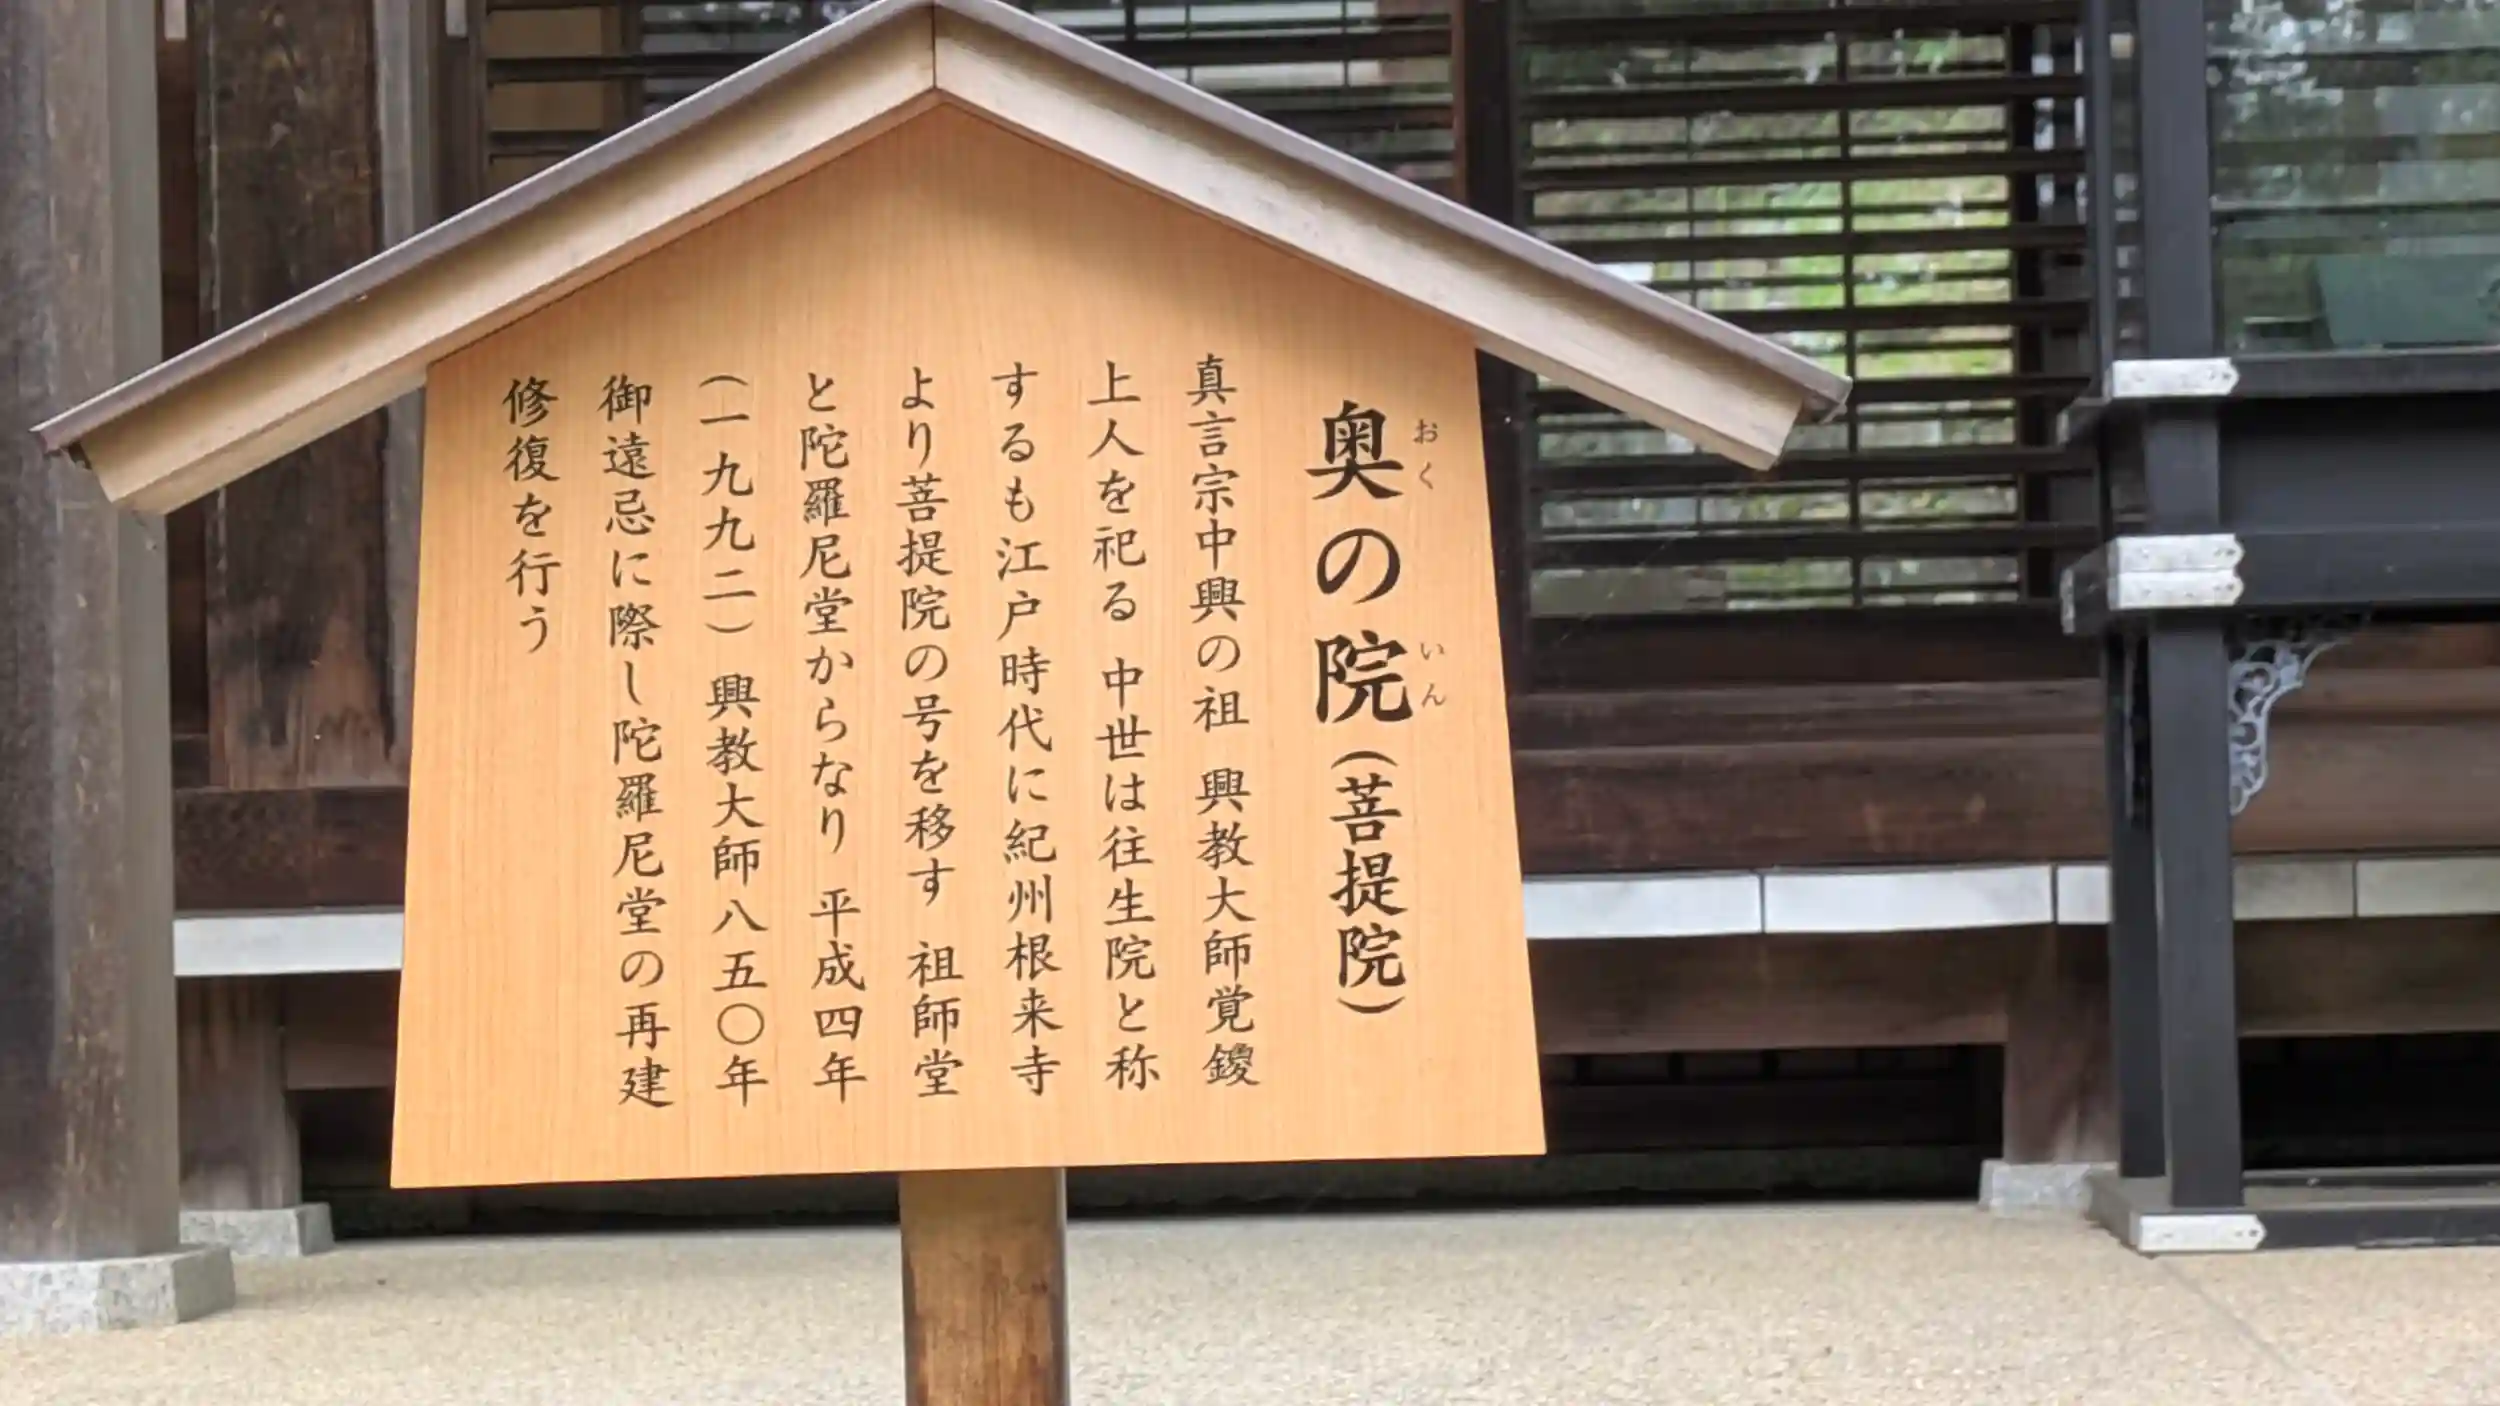 奥の院(菩提院)
おく いん
真言宗中興の祖 興教大師覚鑁
上人を祀る 中世は往生院と称
するも江戸時代に紀州根来寺
より菩提院の号を移す 祖師堂
と陀羅尼堂からなり 平成四年
(一九九二)興教大師八五〇年
御遠忌に際し陀羅尼堂の再建
修復を行う